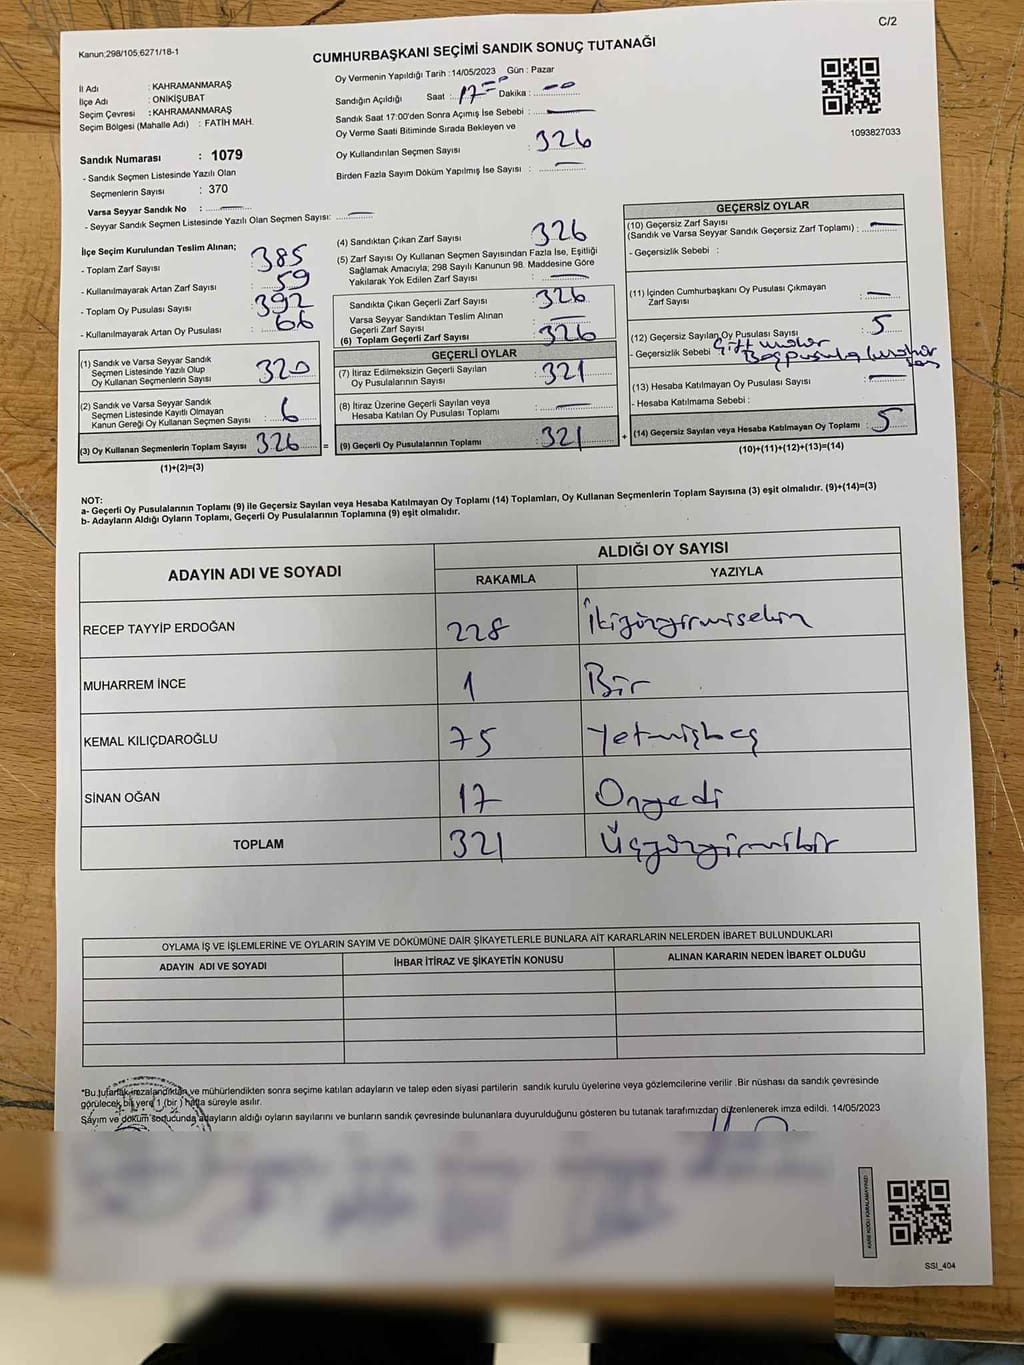 C/2
Kanun:298/105;6271/18-1
CUMHURBAŞKANI SEÇİMİ SANDIK SONUÇ TUTANAĞI
İl Adı : KAHRAMANMARAŞ
İlçe Adı : ONİKİŞUBAT
Seçim Çevresi : KAHRAMANMARAŞ
Seçim Bölgesi (Mahalle Adı) : FATİH MAH.
Sandık Numarası : 1079
- Sandık Seçmen Listesinde Yazılı Olan
Seçmenlerin Sayısı : 370
Varsa Seyyar Sandık No :
- Seyyar Sandık Seçmen Listesinde Yazılı Olan Seçmen Sayısı:
Oy Vermenin Yapıldığı Tarih :14/05/2023 Gün : Pazar
Sandığın Açıldığı Saat : 17 Dakika :
Sandık Saat 17:00'den Sonra Açımış İse Sebebi :
Oy Verme Saati Bitiminde Sırada Bekleyen ve
Oy Kullandırılan Seçmen Sayısı : 326
Birden Fazla Sayım Döküm Yapılmış İse Sayısı :
1093827033
İlçe Seçim Kurulundan Teslim Alınan;
- Toplam Zarf Sayısı : 385
- Kullanılmayarak Artan Zarf Sayısı : 59
- Toplam Oy Pusulası Sayısı : 392
- Kullanılmayarak Artan Oy Pusulası : 66
(1) Sandık ve Varsa Seyyar Sandık
Seçmen Listesinde Yazılı Olup
Oy Kullanan Seçmenlerin Sayısı : 320
(2) Sandık ve Varsa Seyyar Sandık
Seçmen Listesinde Kayıtlı Olmayan
Kanun Gereği Oy Kullanan Seçmen Sayısı : 6
(3) Oy Kullanan Seçmenlerin Toplam Sayısı : 326 =
(1)+(2)=(3)
(4) Sandıktan Çıkan Zarf Sayısı : 326
(5) Zarf Sayısı Oy Kullanan Seçmen Sayısından Fazla İse, Eşitliği
Sağlamak Amacıyla; 298 Sayılı Kanunun 98. Maddesine Göre
Yakılarak Yok Edilen Zarf Sayısı :
Sandıkta Çıkan Geçerli Zarf Sayısı : 326
Varsa Seyyar Sandıktan Teslim Alınan
Geçerli Zarf Sayısı :
(6) Toplam Geçerli Zarf Sayısı : 326
GEÇERLİ OYLAR
(7) İtiraz Edilmeksizin Geçerli Sayılan
Oy Pusulalarının Sayısı : 321
(8) İtiraz Üzerine Geçerli Sayılan veya
Hesaba Katılan Oy Pusulası Toplamı :
(9) Geçerli Oy Pusulalarının Toplamı : 321 +
GEÇERSİZ OYLAR
(10) Geçersiz Zarf Sayısı
(Sandık ve Varsa Seyyar Sandık Geçersiz Zarf Toplamı) :
- Geçersizlik Sebebi :
(11) İçinden Cumhurbaşkanı Oy Pusulası Çıkmayan
Zarf Sayısı :
(12) Geçersiz Sayılan Oy Pusulası Sayısı : 5
- Geçersizlik Sebebi : Çift mühür
Boş pusula
(13) Hesaba Katılmayan Oy Pusulası Sayısı :
- Hesaba Katılmama Sebebi :
(14) Geçersiz Sayılan veya Hesaba Katılmayan Oy Toplamı : 5
(10)+(11)+(12)+(13)=(14)
NOT:
a- Geçerli Oy Pusulalarının Toplamı (9) ile Geçersiz Sayılan veya Hesaba Katılmayan Oy Toplamı (14) Toplamları, Oy Kullanan Seçmenlerin Toplam Sayısına (3) eşit olmalıdır. (9)+(14)=(3)
b- Adayların Aldığı Oyların Toplamı, Geçerli Oy Pusulalarının Toplamına (9) eşit olmalıdır.
ADAYIN ADI VE SOYADI
ALDIĞI OY SAYISI
RAKAMLA YAZIYLA
RECEP TAYYİP ERDOĞAN 228 İkiyüzyirmisekiz
MUHARREM İNCE 1 Bir
KEMAL KILIÇDAROĞLU 75 Yetmişbeş
SİNAN OĞAN 17 Onyedi
TOPLAM 321 Üçyüzyirmibir
OYLAMA İŞ VE İŞLEMLERİNE VE OYLARIN SAYIM VE DÖKÜMÜNE DAİR ŞİKAYETLERLE BUNLARA AİT KARARLARIN NELERDEN İBARET BULUNDUKLARI
ADAYIN ADI VE SOYADI İHBAR İTİRAZ VE ŞİKAYETİN KONUSU ALINAN KARARIN NEDEN İBARET OLDUĞU
*Bu tutanak imzalandıktan ve mühürlendikten sonra seçime katılan adayların ve talep eden siyasi partilerin sandık kurulu üyelerine veya gözlemcilerine verilir .Bir nüshası da sandık çevresinde
görülecek bir yere 1 (bir ) hafta süreyle asılır.
Sayım ve döküm sonucunda adayların aldığı oyların sayılarını ve bunların sandık çevresinde bulunanlara duyurulduğunu gösteren bu tutanak tarafımızdan düzenlenerek imza edildi. 14/05/2023
KARE KODU KARALAMAYINIZ!
SSI_404